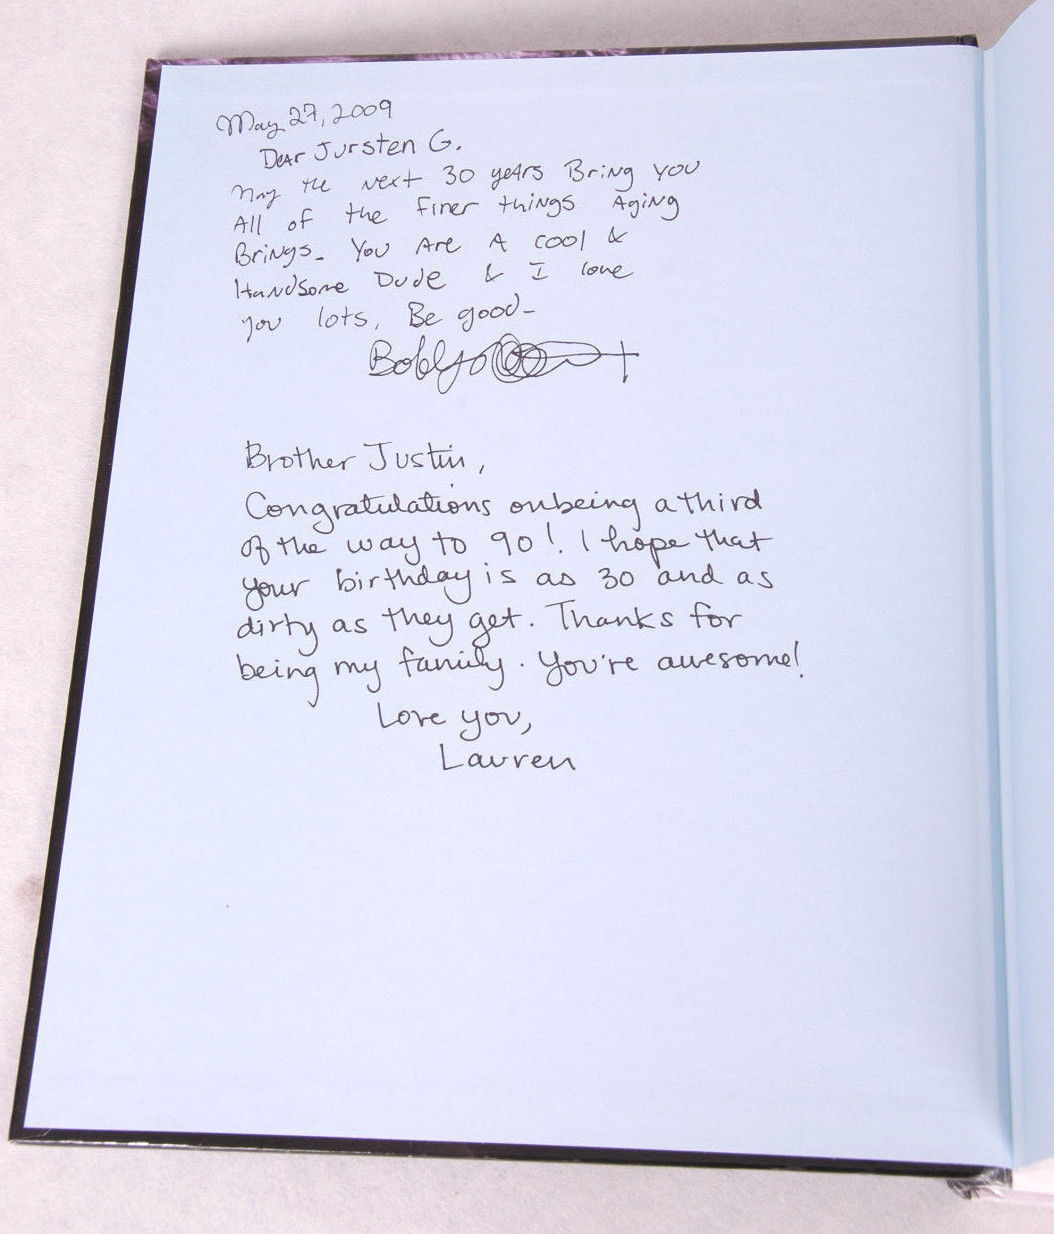 May 27, 2009
Dear Jursten G.
May the next 30 years Bring you
All of the finer things Aging
Brings. You Are A cool &
Handsome Dude & I love
you lots, Be good-
Brother Justin,
Congratulations on being a third
of the way to 90!. I hope that
your birthday is as 30 and as
dirty as they get. Thanks for
being my family. You're awesome!
Love you,
Lauren